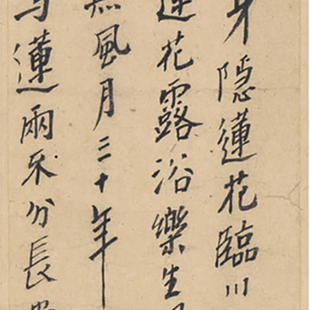 身隱蓮花臨川
蓮花露浴樂生
無風月三十年
與蓮兩不分長